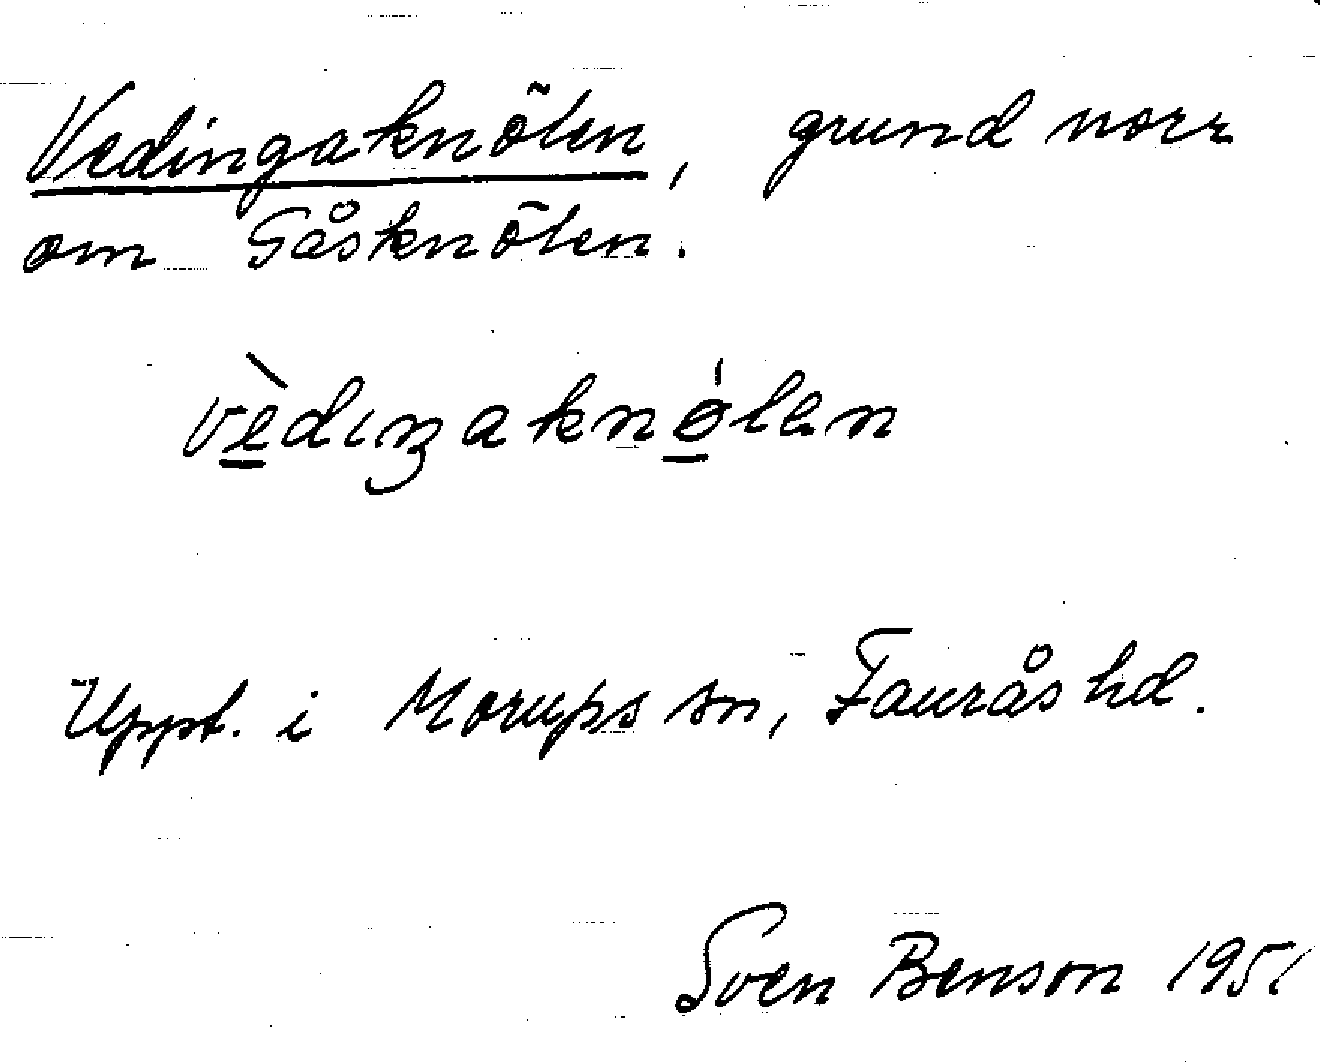 Vedingaknölen, grund norr
om Gåsknölen.
vèdiŋaknǿlen
Uppt. i Morups sn, Faurås hd.
Sven Benson 1951